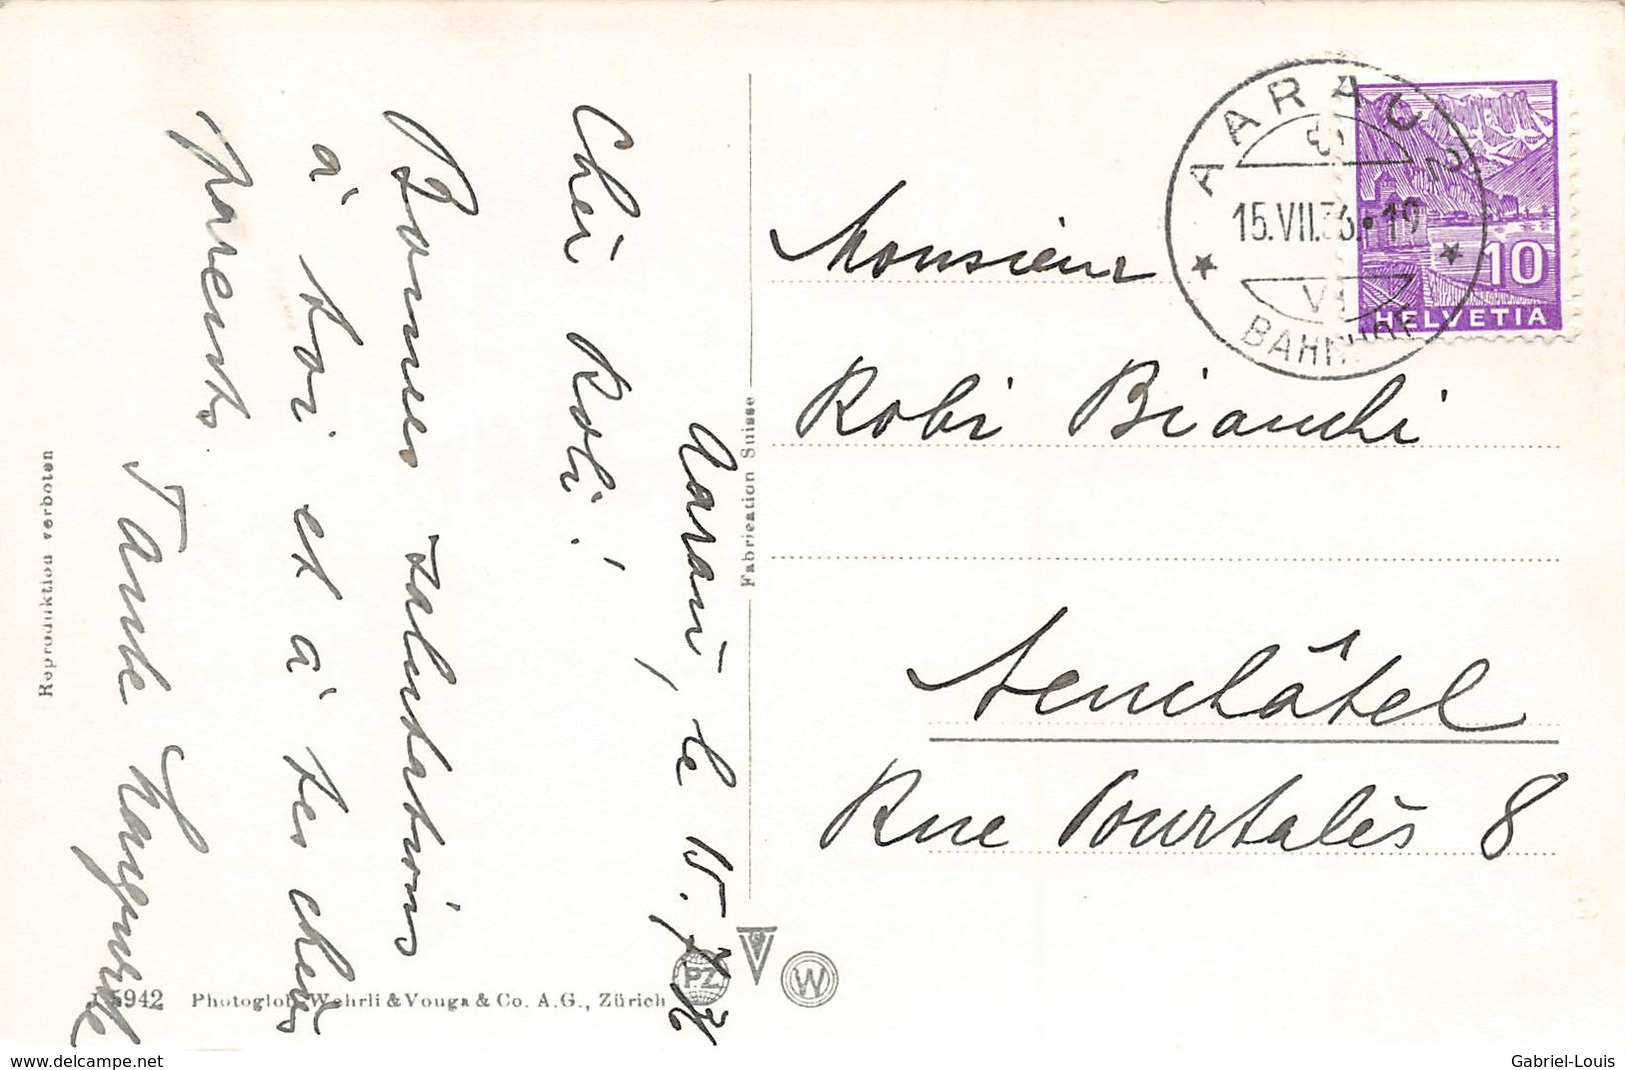 Aarau, le 15. 7. 36
Cher Robi!
Bonnes salutations
à toi et à tes chers
parents.
Tante Marguerite
Monsieur
Robi Bianchi
Neuchâtel
Rue Pourtalès 8
AARAU 2
15.VII.36.19
BAHNHOF
10
HELVETIA
Fabrication Suisse
Reproduktion verboten
5942 Photoglob-Wehrli & Vouga & Co. A.G., Zürich
PZ
V
W
www.delcampe.net
Gabriel-Louis